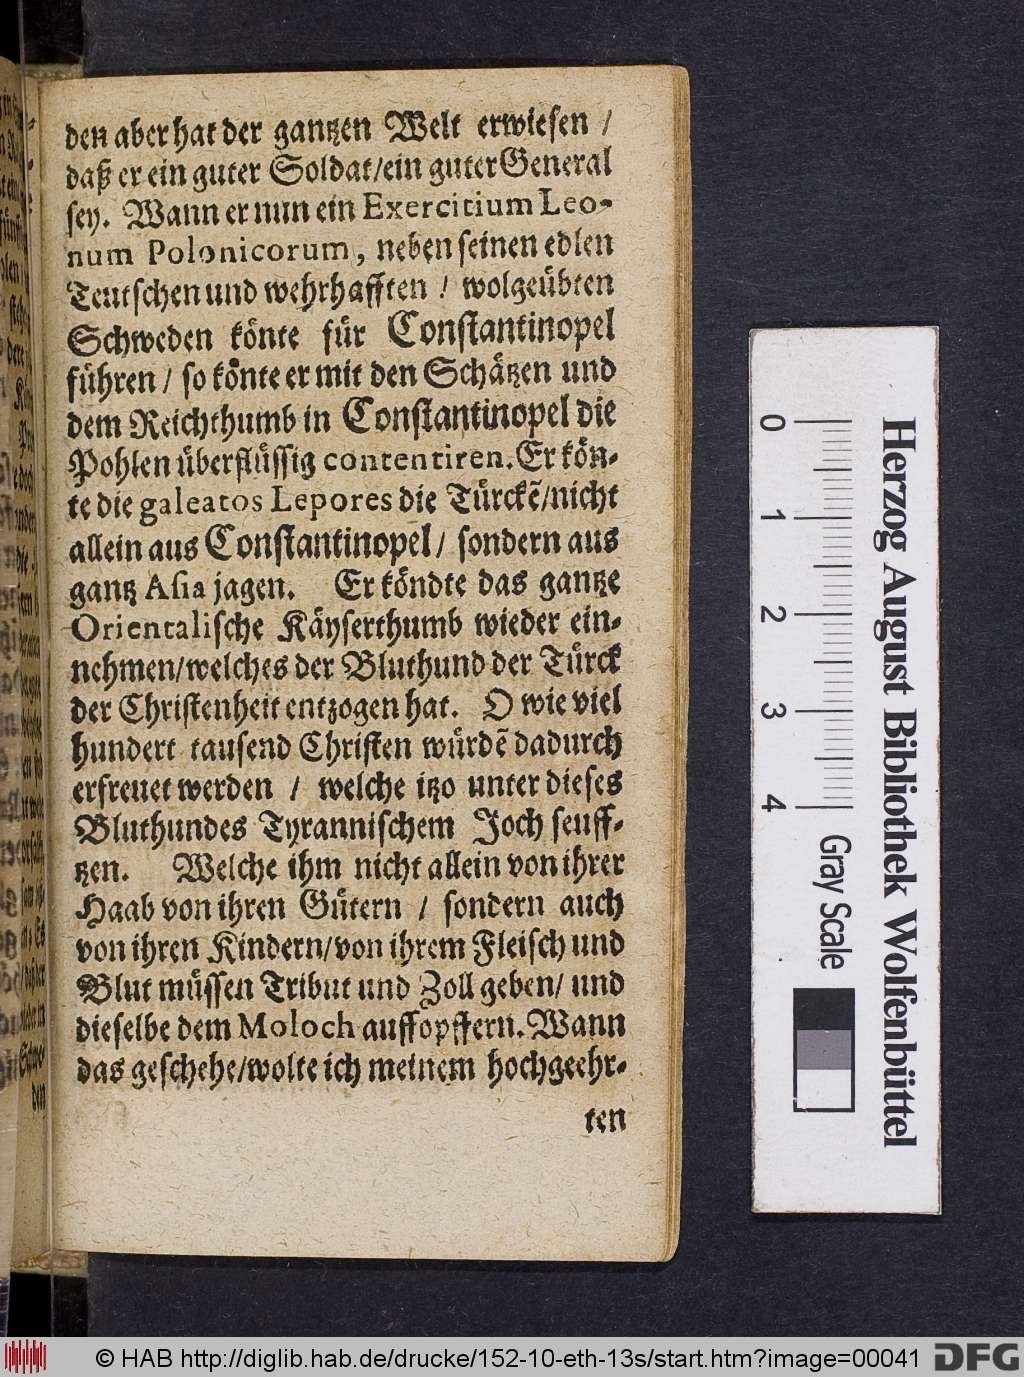 den aber hat der gantzen Welt erwiesen /
daß er ein guter Soldat/ein guter General
sey. Wann er nun ein Exercitium Leo-
num Polonicorum, neben seinen edlen
Teutschen und wehrhafften / wolgeübten
Schweden könte für Constantinopel
führen / so könte er mit den Schätzen und
dem Reichthumb in Constantinopel die
Pohlen überflüssig contentiren. Er kön-
te die galeatos Lepores die Türckẽ/nicht
allein aus Constantinopel / sondern aus
gantz Asia jagen. Er köndte das gantze
Orientalische Käyserthumb wieder ein-
nehmen/welches der Bluthund der Türck
der Christenheit entzogen hat. O wie viel
hundert tausend Christen würdẽ dadurch
erfreuet werden / welche itzo unter dieses
Bluthundes Tyrannischem Joch seuff-
tzen. Welche ihm nicht allein von ihrer
Haab von ihren Gütern / sondern auch
von ihren Kindern/von ihrem Fleisch und
Blut müssen Tribut und Zoll geben/ und
dieselbe dem Moloch auffopffern. Wann
das geschehe/wolte ich meinem hochgeehr-
ten
0 1 2 3 4
Gray Scale
Herzog August Bibliothek Wolfenbüttel
© HAB http://diglib.hab.de/drucke/152-10-eth-13s/start.htm?image=00041
DFG